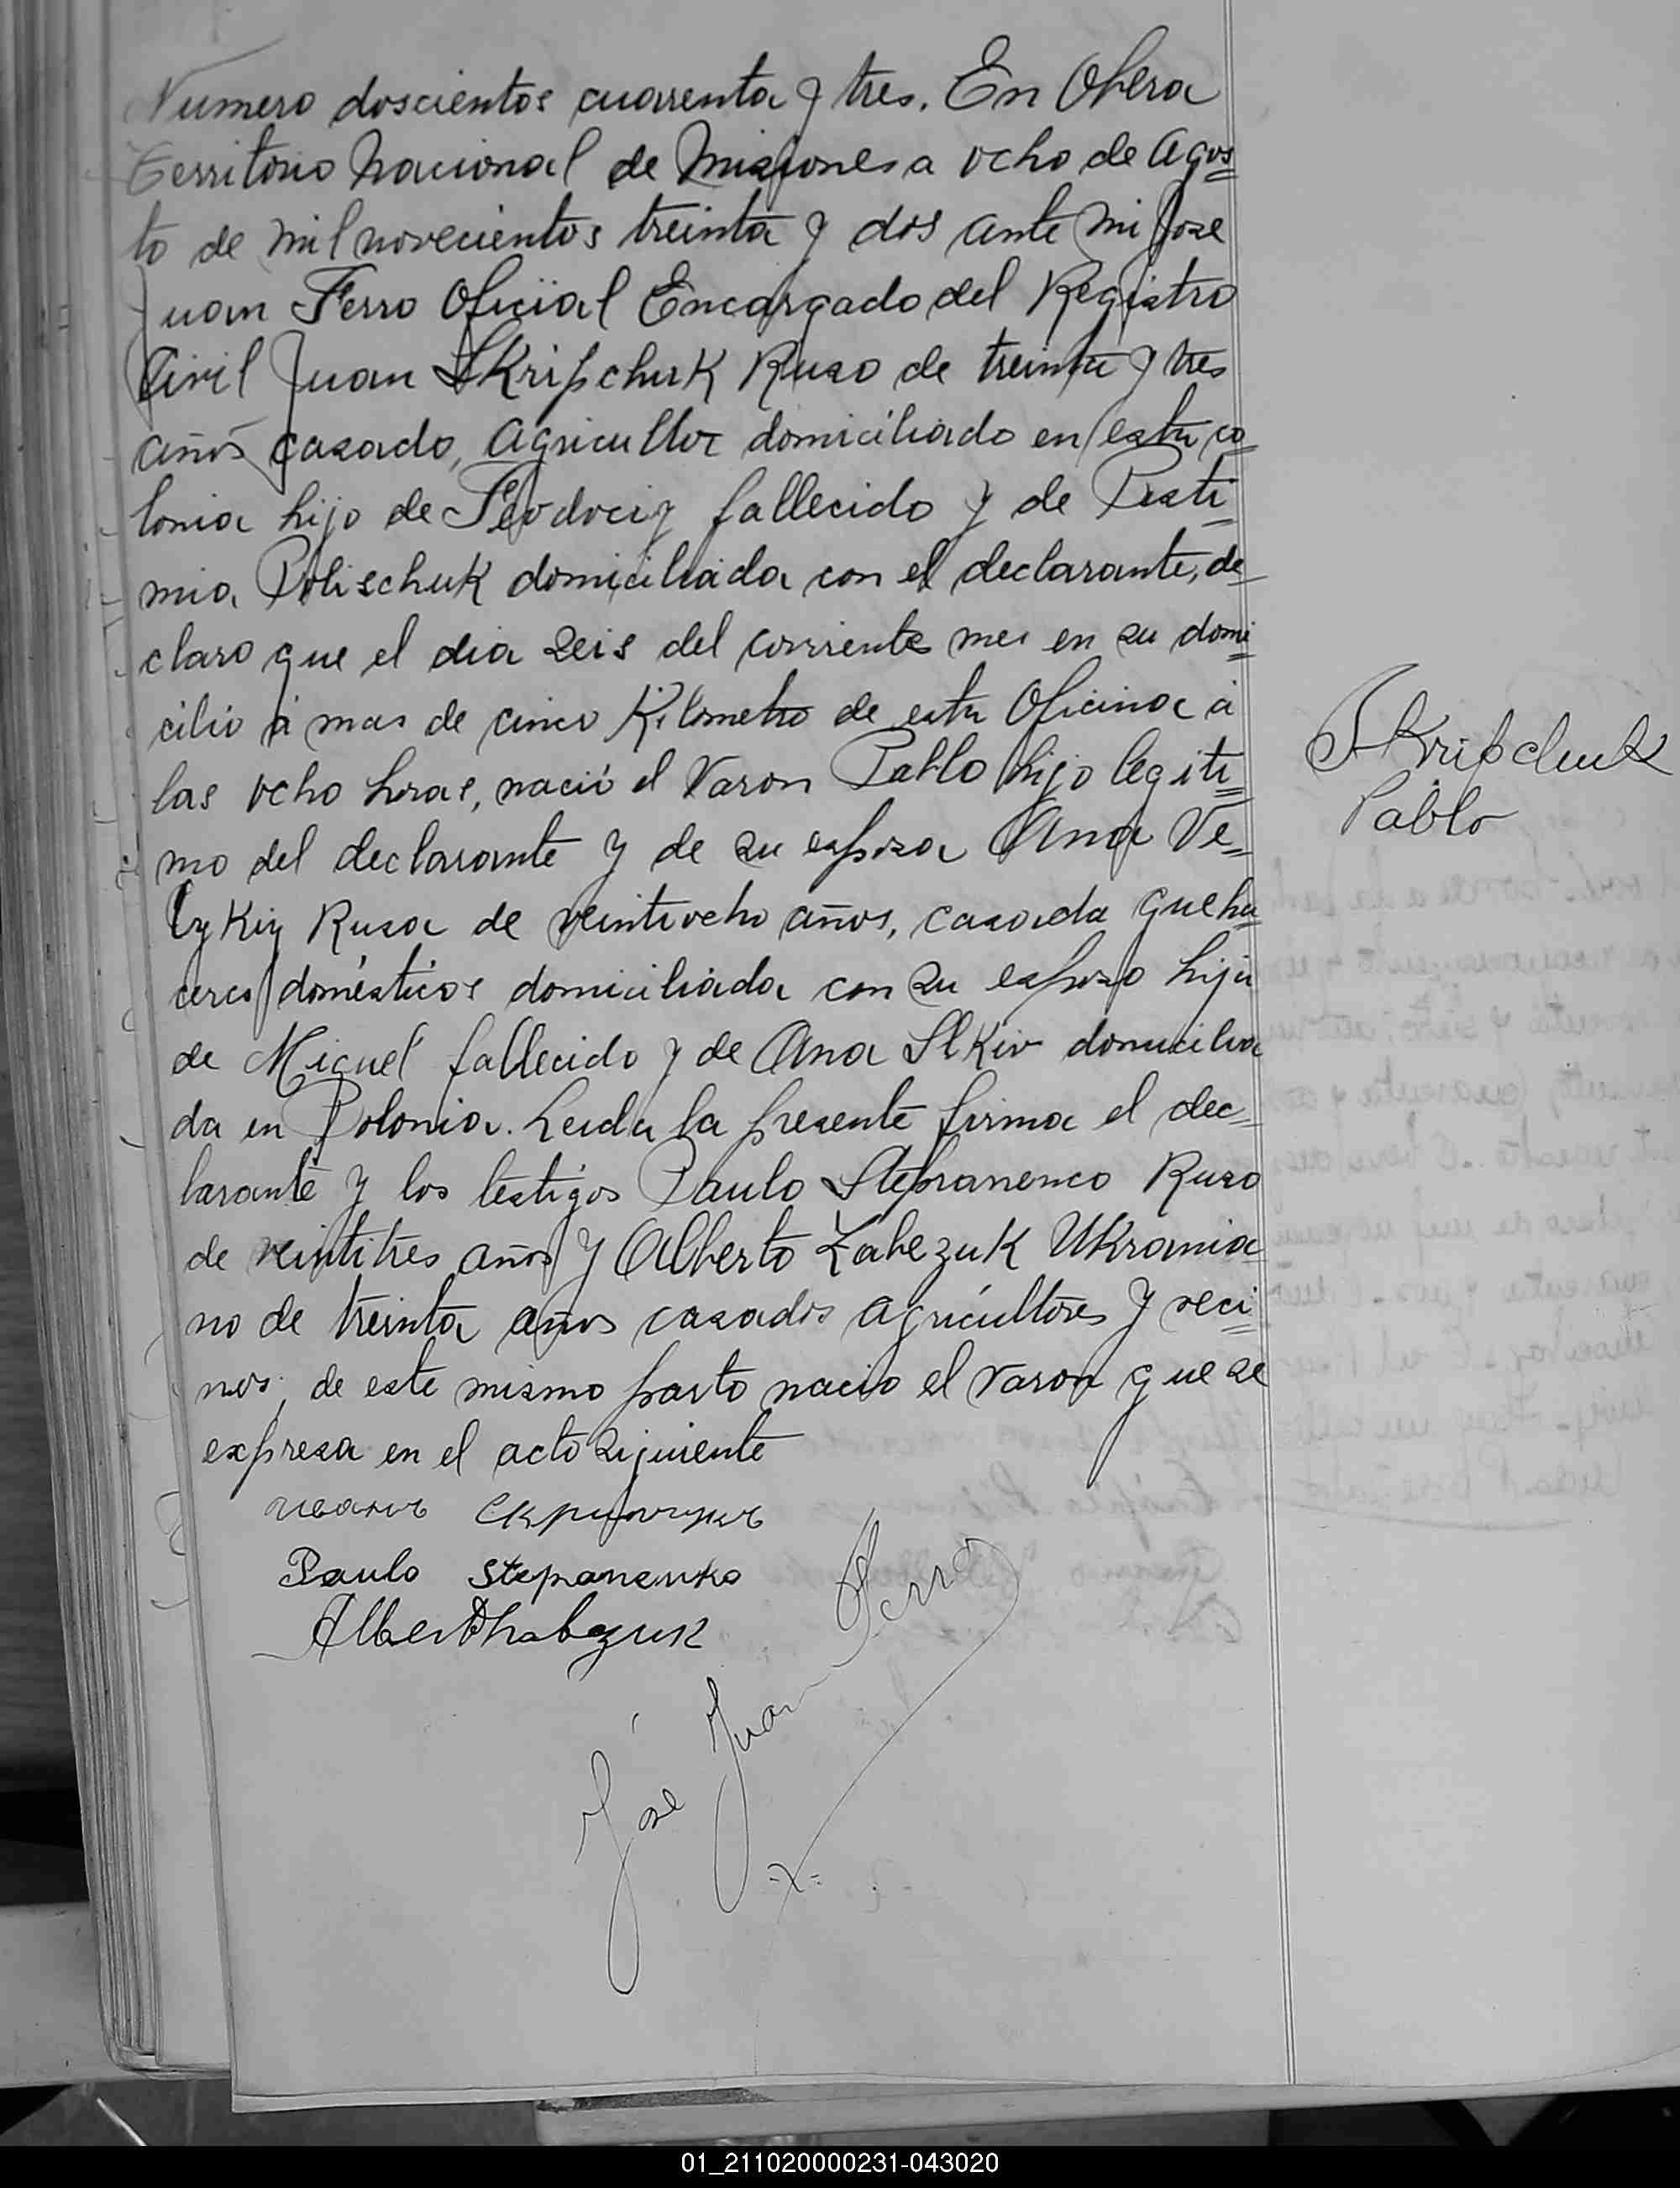 Numero doscientos cuarenta y tres. En Obera
Territorio Nacional de Misiones a ocho de Agos=
to de mil novecientos treinta y dos ante mi Jose
Juan Ferro Oficial Encargado del Registro
Civil Juan Skripchuk Ruso de treinta y tres
años casado, agricultor domiciliado en esta co-
lonia hijo de Feodociy fallecido y de Pesti-
mia Polischuk domiciliada con el declarante, de-
claro que el dia seis del corriente mes en su domi=
cilio á mas de cinco Kilometro de esta Oficina á
las ocho horas, nació el Varon Pablo hijo legiti=
mo del declarante y de su esposa Ana Ve=
lykiy Rusa de veintiocho años, casada queha-
ceres domésticos domiciliada con su esposo hija
de Miguel fallecido y de Ana Slkiv domicilia
da en Polonia. Leida la presente firma el dec=
larante y los testigos Paulo Stepranenco Ruso
de veintitres años y Alberto Zabezuk Ukrania
no de treinta años casados agricultores y veci=
nos, de este mismo parto nacio el varon que se
expresa en el acto siguiente
иванъ Скрипчукъ
Paulo Stepanenko
José Juan Ferro
Skripchuk
Pablo
01_211020000231-043020